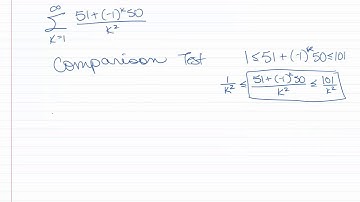 ∞
Σ 51+(-1)^k 50 / k²
k=1
Comparison Test 1 ≤ 51 + (-1)^k 50 ≤ 101
1/k² ≤ 51+(-1)^k 50 / k² ≤ 101/k²